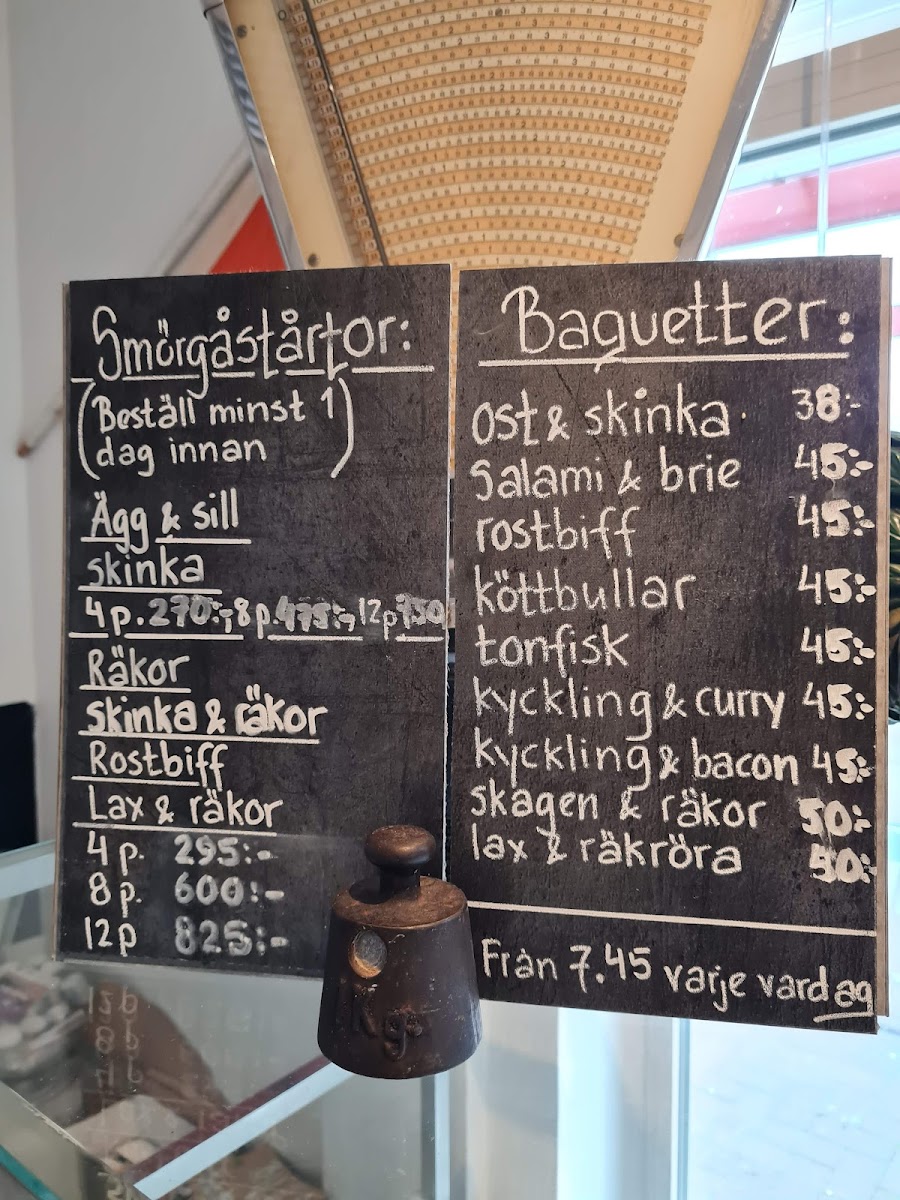 Smörgåstårtor:
(Beställ minst 1
dag innan)
Ägg & sill
skinka
4p. 270:-, 8p. 475:-, 12p 750
Räkor
skinka & räkor
Rostbiff
Lax & räkor
4 p. 295:-
8 p. 600:-
12p 825:-
Baguetter:
ost & skinka 38:-
salami & brie 45:-
rostbiff 45:-
köttbullar 45:-
tonfisk 45:-
kyckling & curry 45:-
kyckling & bacon 45:-
skagen & räkor 50:-
lax & räkröra 50:-
Från 7.45 varje vardag
1Kg